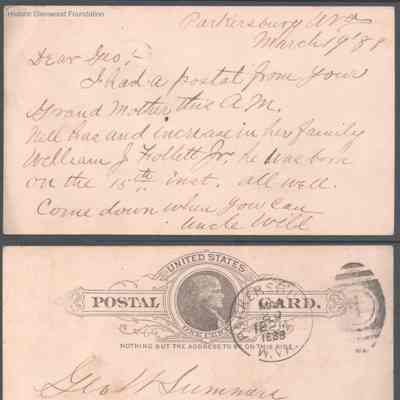 Historic Glenwood Foundation
Parkersburg WVa
March 19' 88
Dear Geo,
I had a postal from your
Grand Mother this A.M.
Nell has and increase in her family
William J Follett Jr. he was born
on the 15th inst. all well.
Come down when you can
Uncle Will
UNITED STATES
POSTAL CARD.
ONE CENT
NOTHING BUT THE ADDRESS TO BE ON THIS SIDE.
PARKERSBURG
1888
W.VA.
Geo W Summers